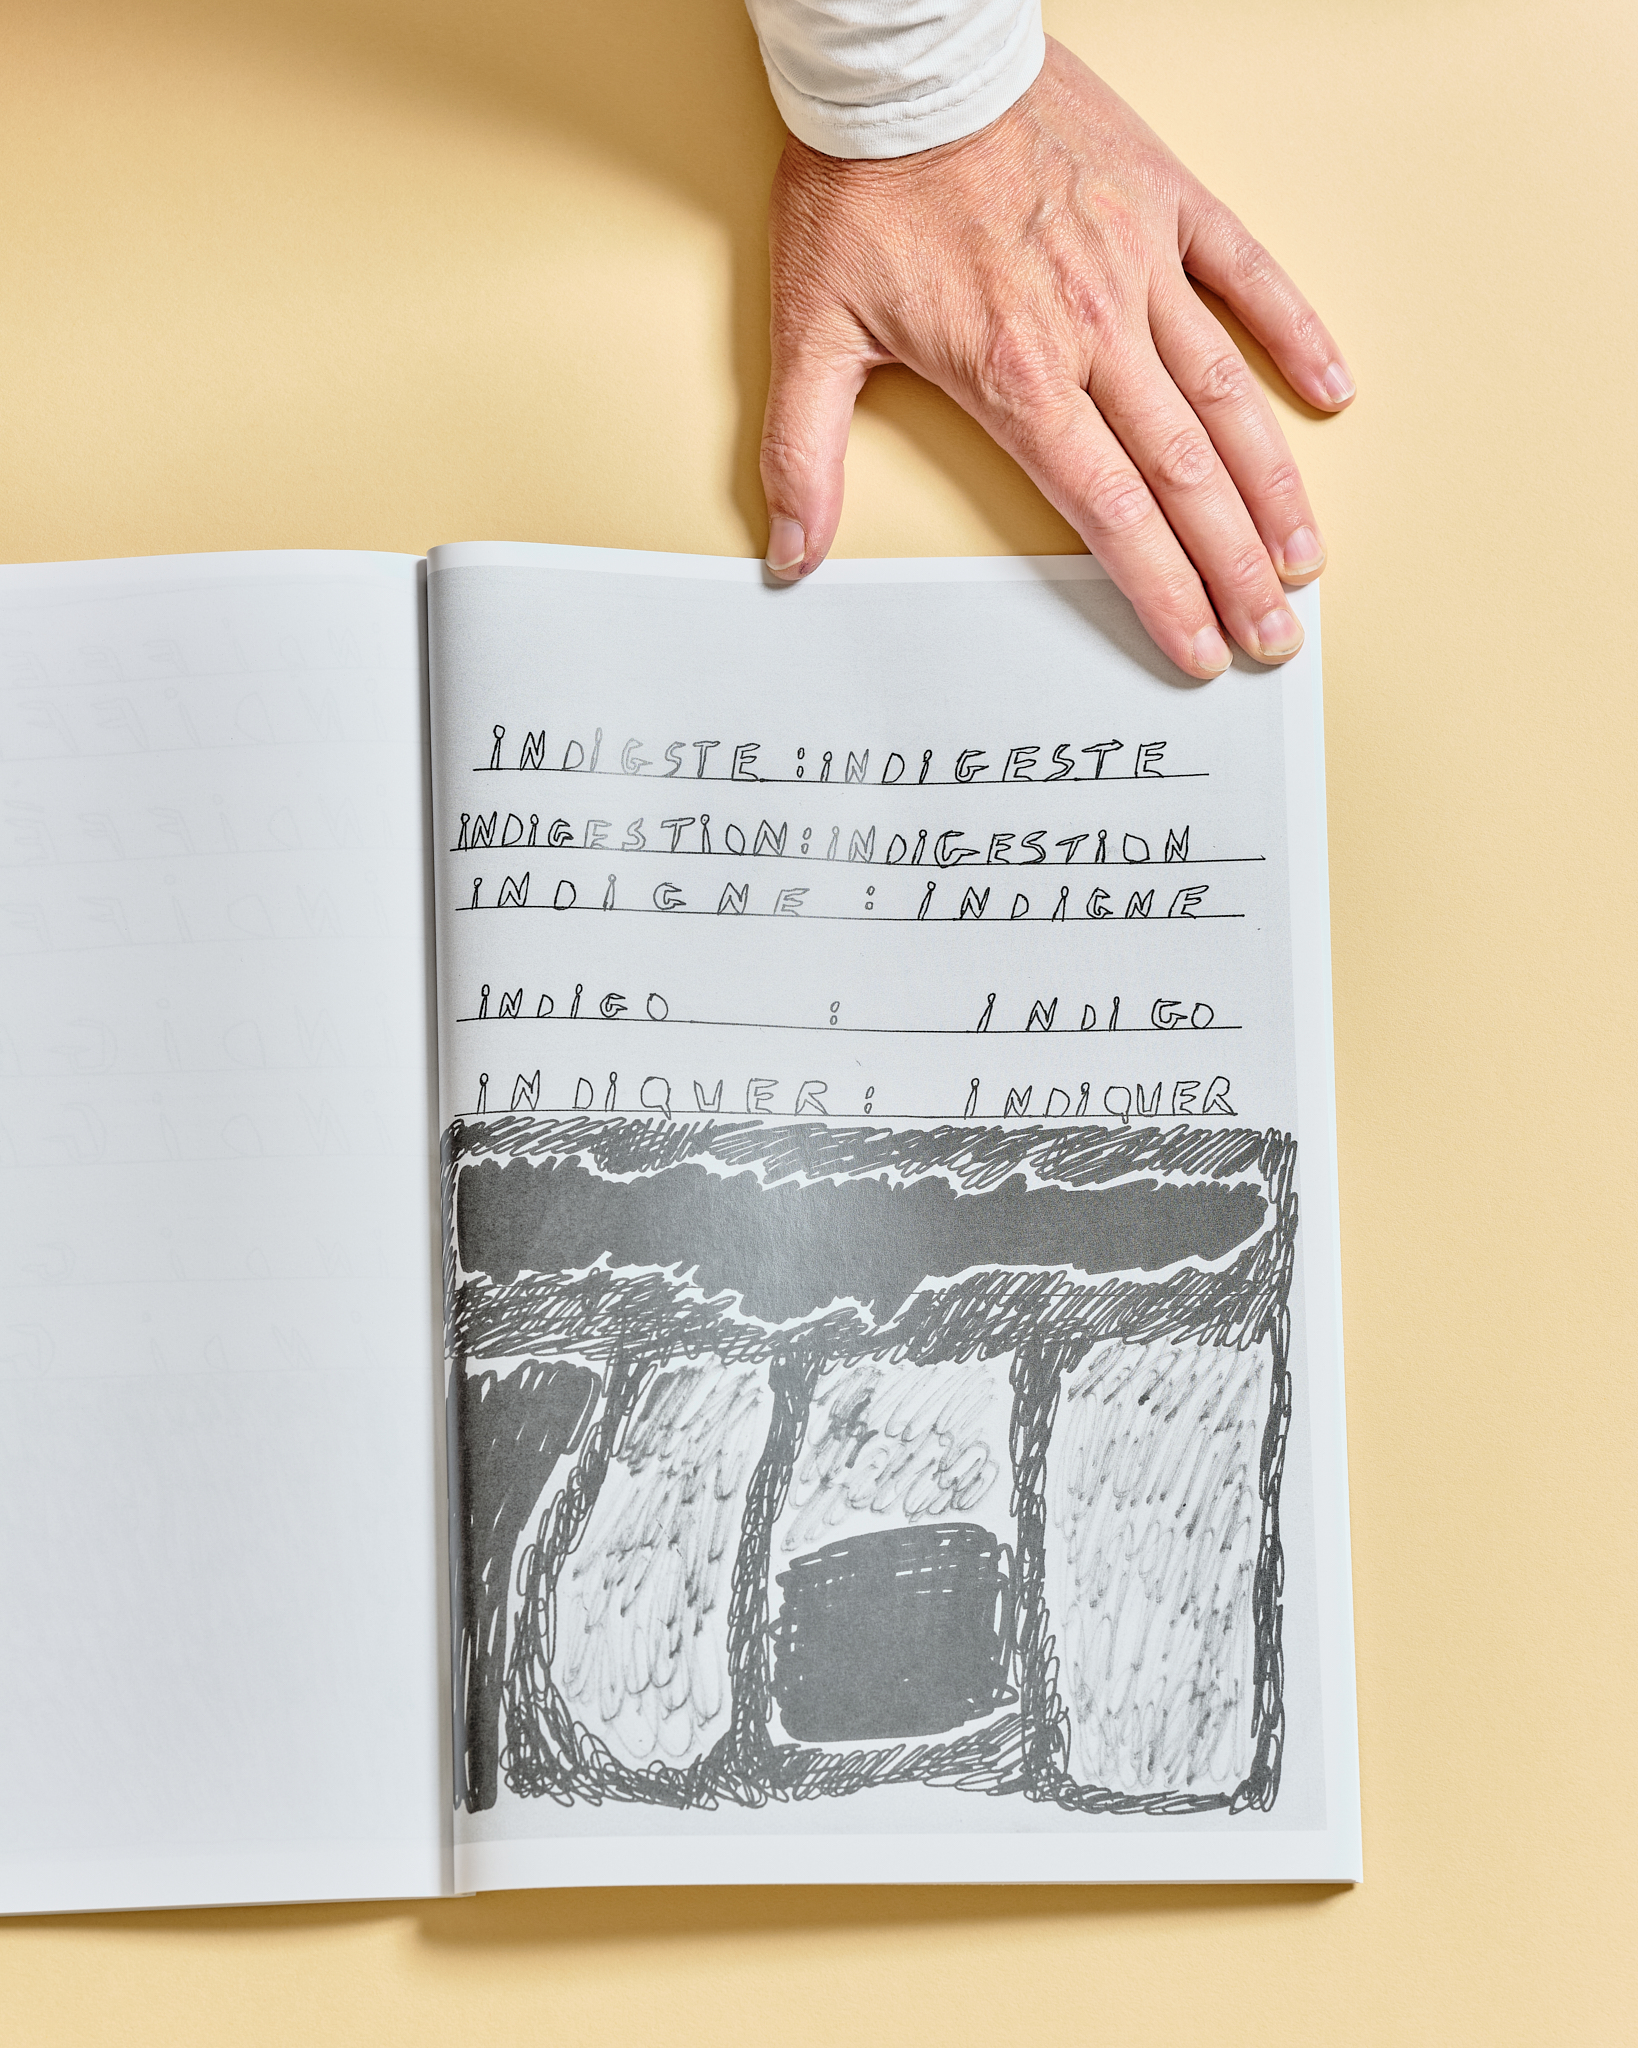 iNDiGSTE :iNDiGESTE
iNDiGESTiON:iNDiGESTiON
iNDiGNE : iNDiGNE
iNDiGO : iNDiGO
iNDiQUER : iNDiQUER